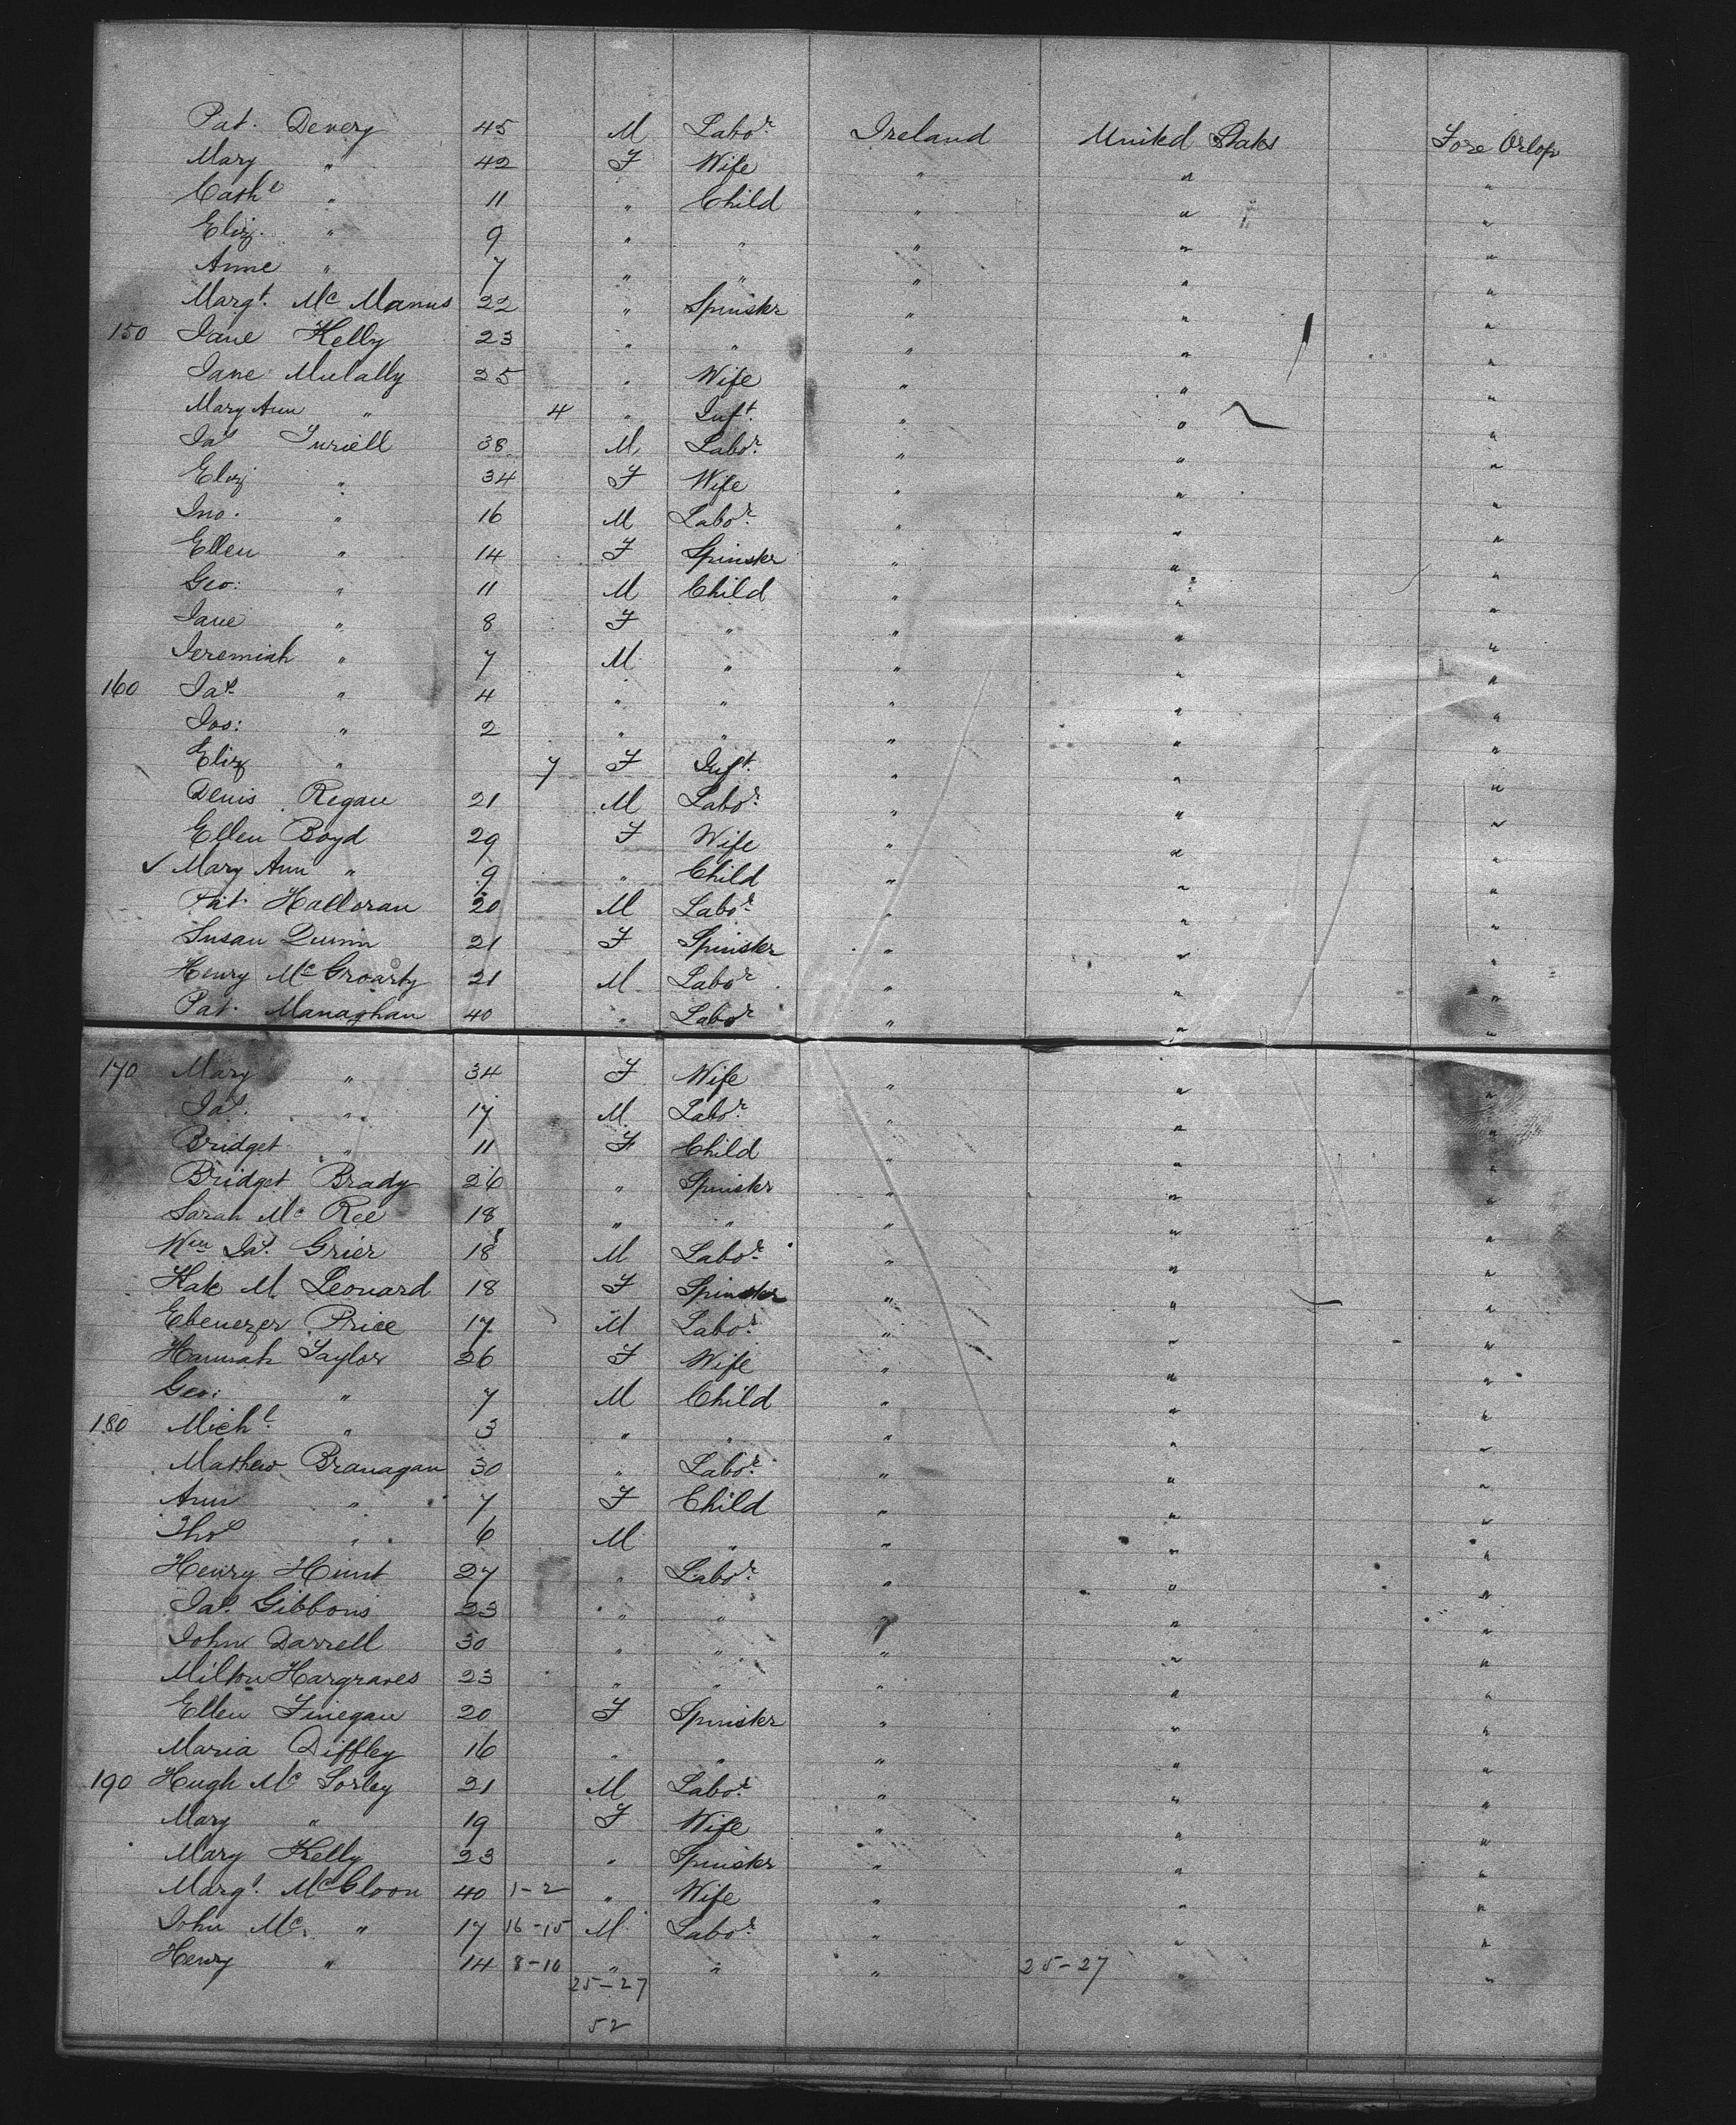 Pat. Devery 45 M Labor. Ireland United States Fore Orlop
Mary " 42 F Wife " " "
Cathe " 11 " Child " " "
Eliz. " 9 " " " " "
Anne " 7 " " " " "
Margt. Mc Manus 22 " Spinster " " "
150 Jane Kelly 23 " " " " "
Jane Mulally 25 " Wife " " "
Mary Ann " 4 " Inft. " " "
Jas. Turiell 38 M Labor. " " "
Eliz " 34 F Wife " " "
Jno. " 16 M Labor. " " "
Ellen " 14 F Spinster " " "
Geo: " 11 M Child " " "
Jane " 8 F " " " "
Jeremiah " 7 M " " " "
160 Jas. " 4 " " " " "
Jos: " 2 " " " " "
Eliz " 7 F Inft. " " "
Denis Regan 21 M Labor. " " "
Ellen Boyd 29 F Wife " " "
✓ Mary Ann " 9 " Child " " "
Pat. Halloran 20 M Labor. " " "
Susan Quinn 21 F Spinster " " "
Henry Mc Groarty 21 M Labor. " " "
Pat. Managhan 40 " Labor " " "
170 Mary " 34 F Wife " " "
Jas. " 17 M Labor. " " "
Bridget " 11 F Child " " "
Bridget Brady 26 " Spinster " " "
Sarah Mc Ree 18 " " " " "
Wm Jas. Grier 18 M Labor. " " "
Kate M Leonard 18 F Spinster " " "
Ebenezer Price 17 M Labor. " " "
Hannah Taylor 26 F Wife " " "
Geo: " 7 M Child " " "
180 Michl. " 3 " " " " "
Mathew Branagan 30 " Labor. " " "
Ann " 7 F Child " " "
Thos " 6 M " " " "
Henry Hunt 27 " Labor. " " "
Jas. Gibbons 23 " " " " "
John Darrell 30 " " " " "
Milton Hargraves 23 " " " " "
Ellen Finegan 20 F Spinster " " "
Maria Diffley 16 " " " " "
190 Hugh Mc Sorley 21 M Labor. " " "
Mary " 19 F Wife " " "
Mary Kelly 23 " Spinster " " "
Margt. McCloon 40 1-2 " Wife " " "
John Mc. " 17 16-15 M Labor. " " "
Henry " 14 8-10 " " " 25-27 " "
25-27
52